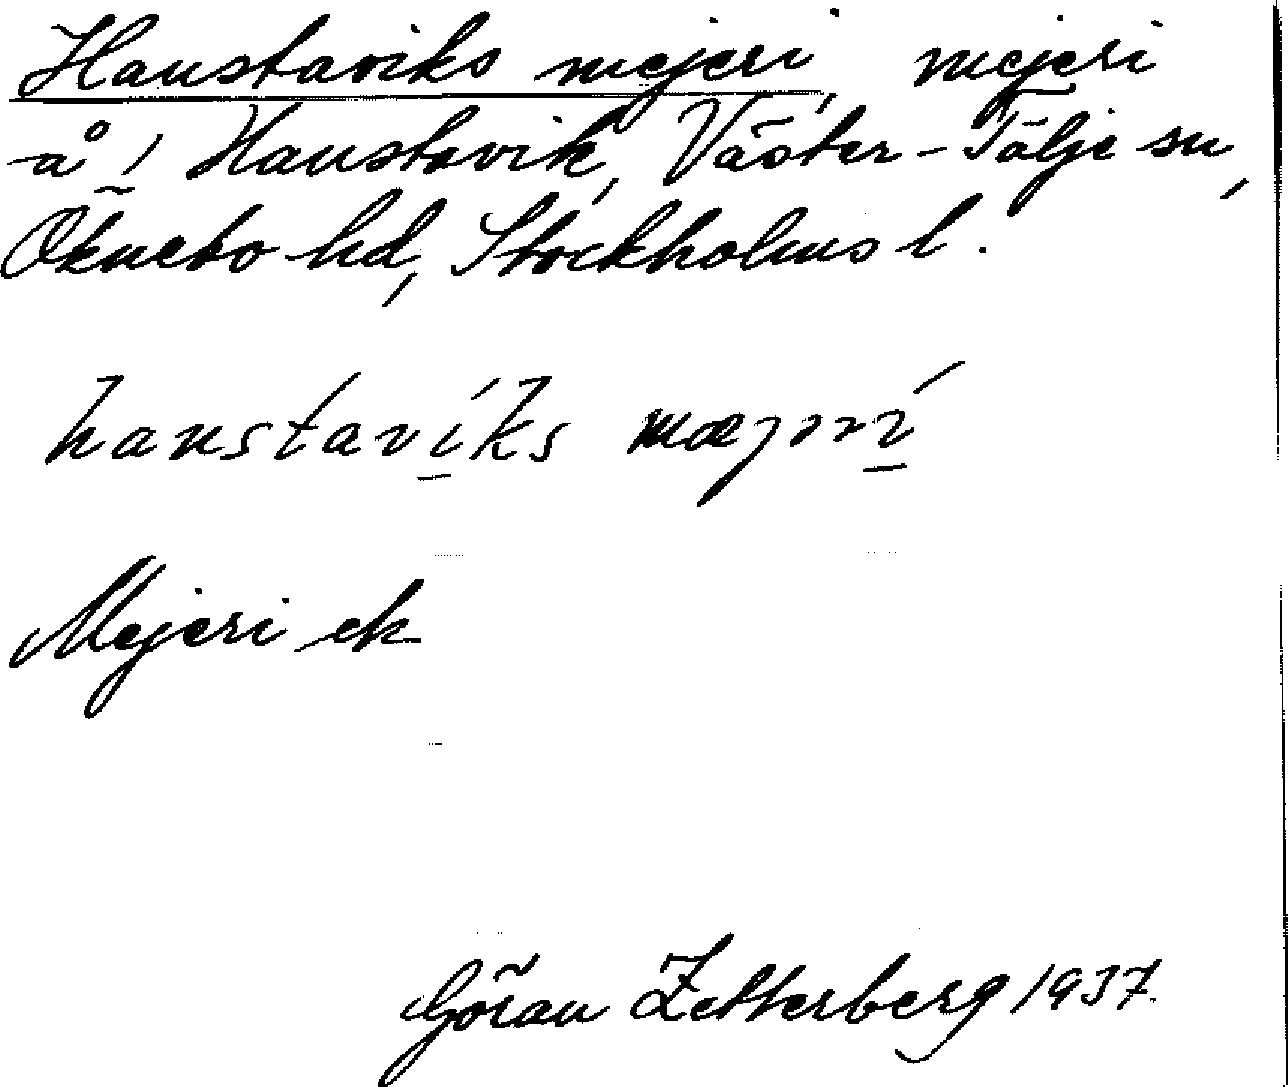 Hanstaviks mejeri, mejeri
å 1 Hanstavik, Väster-Tälje sn,
Öknebo hd, Stockholms l.
hanstavíks mæjərí
Mejeri ek
Göran Zetterberg 1937.